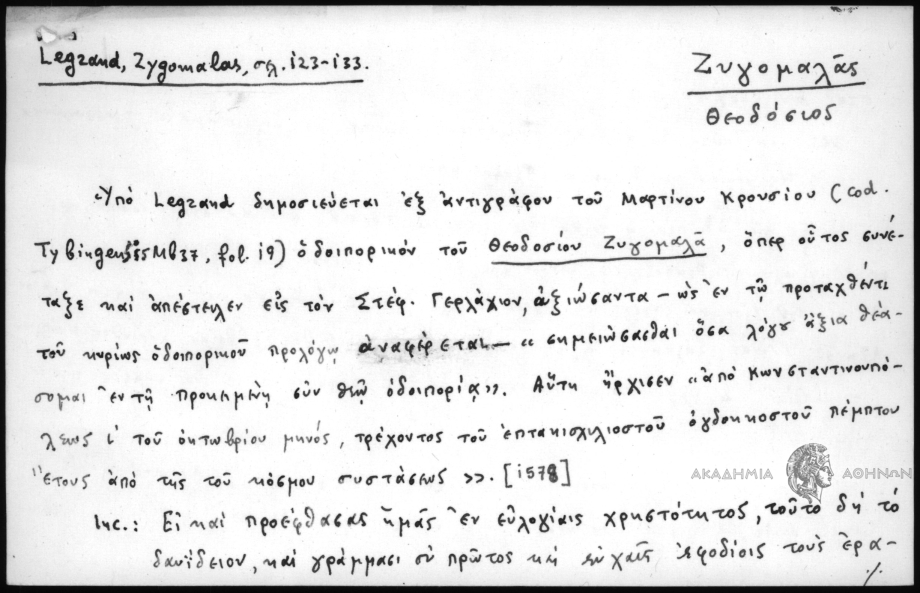 Legrand, Zygomalas, σελ. 123-133.
Ζυγομαλᾶς
Θεοδόσιος
Ὑπὸ Legrand δημοσιεύεται ἐξ ἀντιγράφου τοῦ Μαρτίνου Κρουσίου (cod.
Tybingensis Mb 37, fol. 19) ὁδοιπορικόν τοῦ Θεοδοσίου Ζυγομαλᾶ, ὅπερ οὗτος συνέ-
ταξε καὶ ἀπέστειλεν εἰς τὸν Στέφ. Γερλάχιον, ἀξιώσαντα — ὡς ἐν τῷ προταχθέντι
τοῦ κυρίως ὁδοιπορικοῦ προλόγῳ ἀναφέρεται — « σημειώσασθαι ὅσα λόγου ἄξια θεά-
σομαι ἐν τῇ προκειμένῃ σὺν θεῷ ὁδοιπορίᾳ». Αὕτη ἤρχισεν «ἀπὸ Κωνσταντινουπό-
λεως ι´ τοῦ ὀκτωβρίου μηνός, τρέχοντος τοῦ ἑπτακισχιλιοστοῦ ὀγδοηκοστοῦ πέμπτου
ἔτους ἀπὸ τῆς τοῦ κόσμου συστάσεως ». [1578]
ΑΚΑΔΗΜΙΑ ΑΘΗΝΩΝ
Inc.: Εἰ καὶ προέφθασας ἡμᾶς ἐν εὐλογίαις χρηστότητος, τοῦτο δὴ τὸ
δαυΐδειον, καὶ γράμμασι σὺ πρῶτος καὶ εὐχαῖς ἐφοδίοις τοὺς ἐρα-
./.